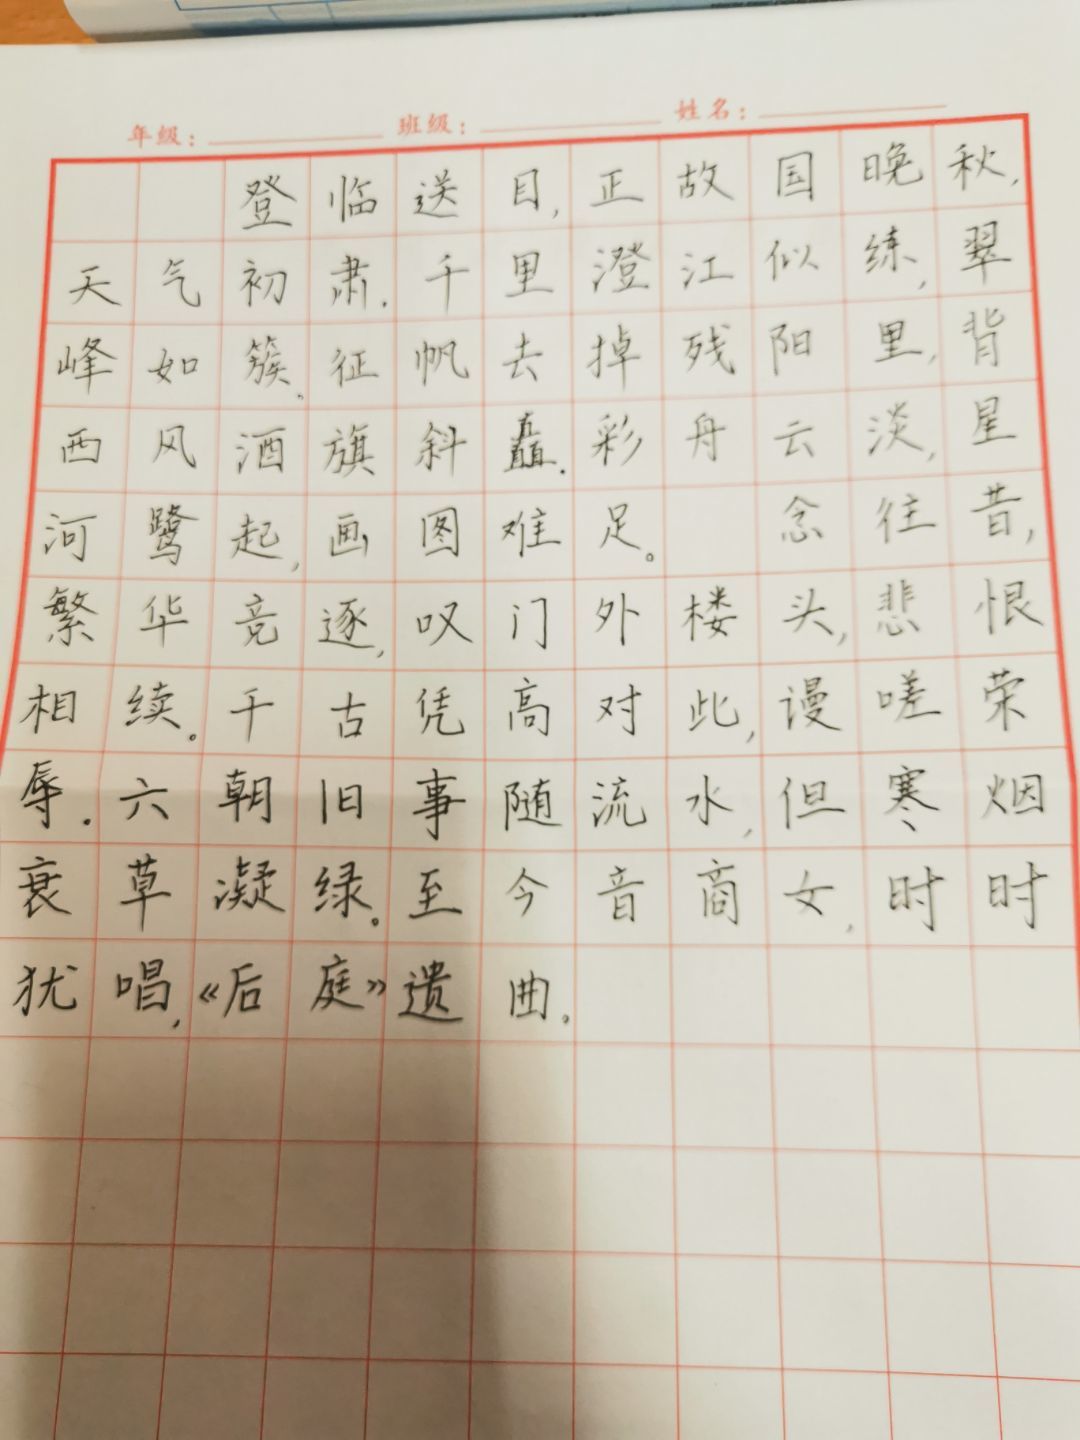 年级： 班级： 姓名：
登临送目，正故国晚秋，
天气初肃．千里澄江似练，翠
峰如簇。征帆去掉残阳里，背
西风酒旗斜矗．彩舟云淡，星
河鹭起，画图难足。 念往昔，
繁华竞逐，叹门外楼头，悲恨
相续。千古凭高对此，谩嗟荣
辱．六朝旧事随流水，但寒烟
衰草凝绿。至今音商女，时时
犹唱，《后庭》遗曲．